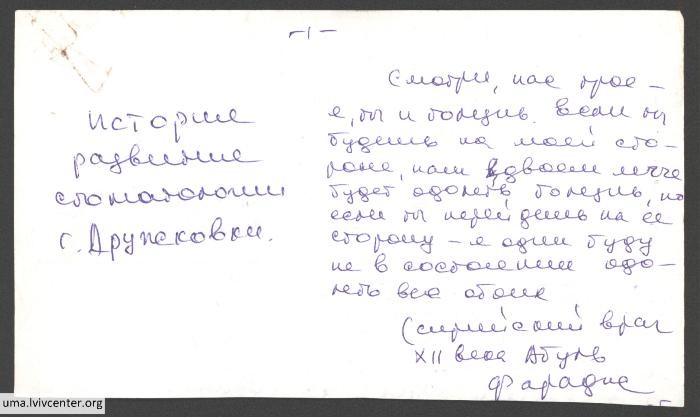 -1-
История
развития
стоматологии
г. Дружковки.
Смотри, нас трое –
я, ты и болезнь. Если ты
будешь на моей сто-
роне, нам вдвоем легче
будет одолеть болезнь, но
если ты перейдешь на ее
сторону – я один буду
не в состоянии одо-
леть вас обоих
(сирийский врач
XII века Абуль
Фарадж
uma.lvivcenter.org